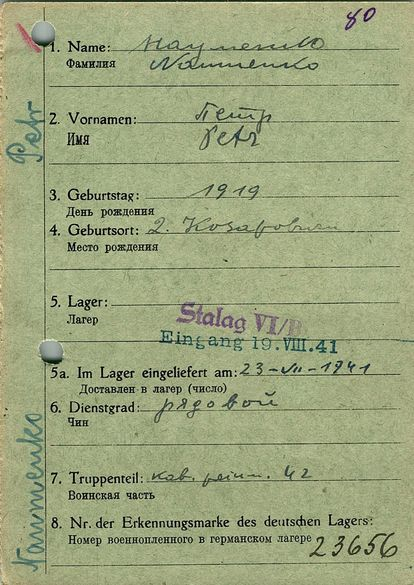 80
1. Name: Науменко
Фамилия Naumenko
2. Vornamen: Петр
Имя Petr
3. Geburtstag: 1919
День рождения
4. Geburtsort: 2. Козаровичи
Место рождения
5. Lager:
Лагер
Stalag VI/B
Eingang 19. VIII. 41
5a. Im Lager eingeliefert am: 23-VII-1941
Доставлен в лагер (число)
6. Dienstgrad: рядовой
Чин
7. Truppenteil: кав. 42
Воинская часть
8. Nr. der Erkennungsmarke des deutschen Lagers:
Номер военнопленного в германском лагере 23656
Petr
Naumenko